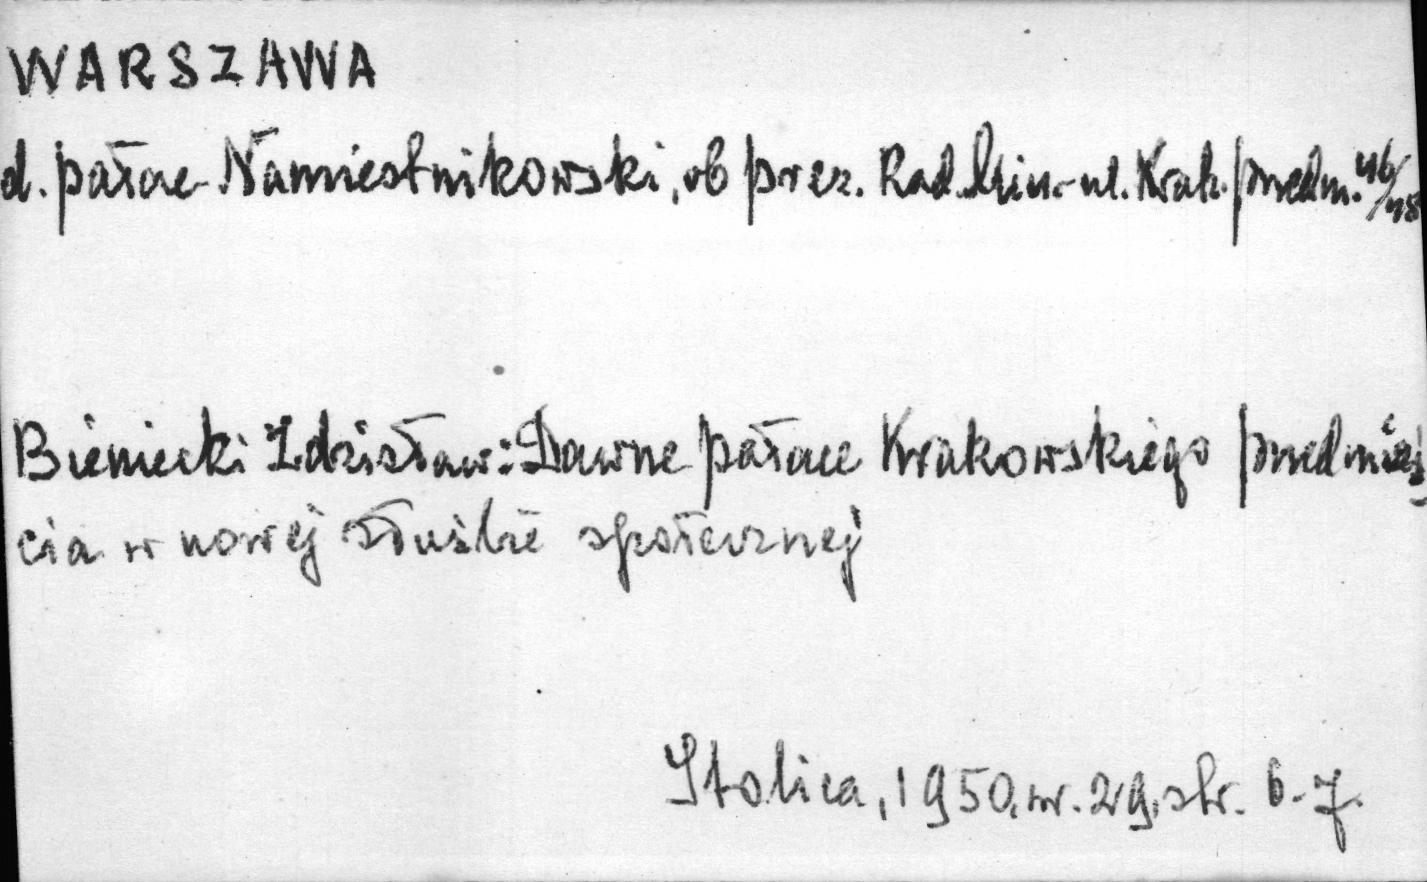 WARSZAWA
d. pałac Namiestnikowski, ob prez. Rad. Min. - ul. Krak. przedm. 46/48
Bieniecki Zdzisław: Dawne pałace Krakowskiego przedmieś
cia w nowej służbie społecznej
Stolica, 1950, nr. 29, str. 6-7.